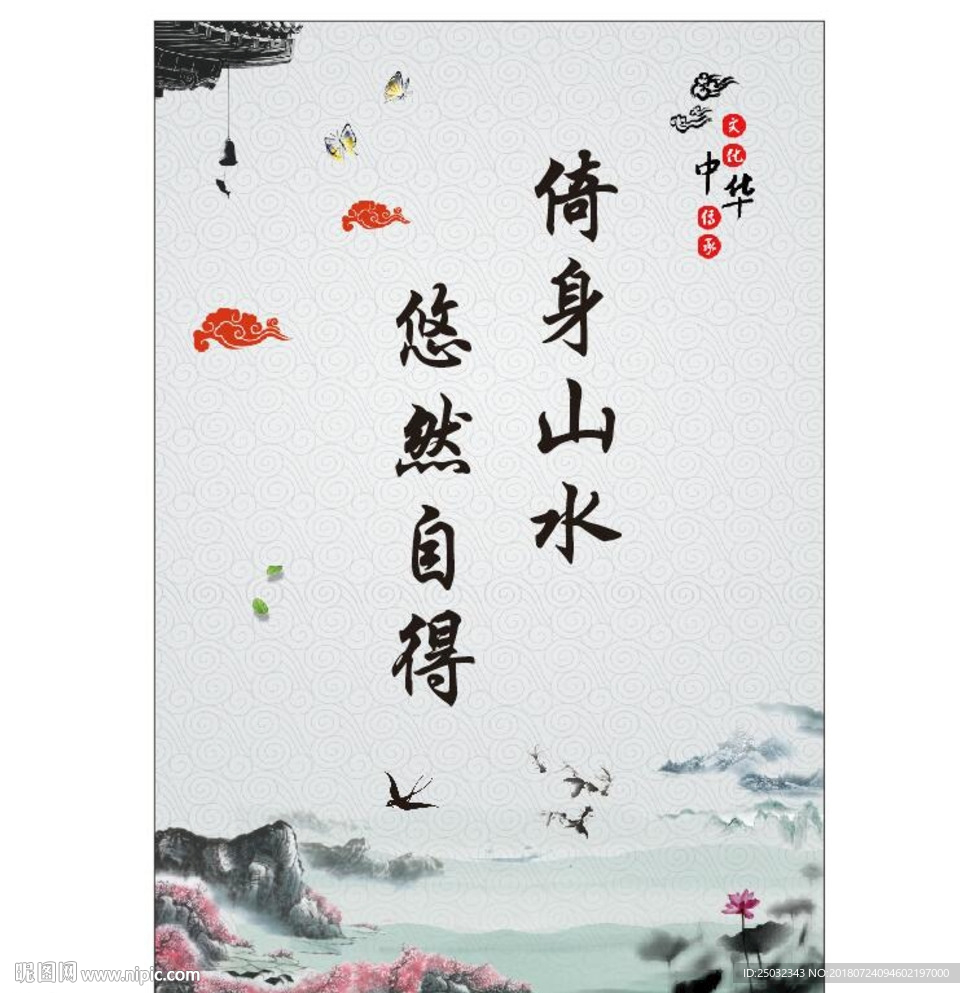 倚身山水
悠然自得
中华
文化
传承
昵图网 www.nipic.com
ID:25032343 NO:20180724094602197000